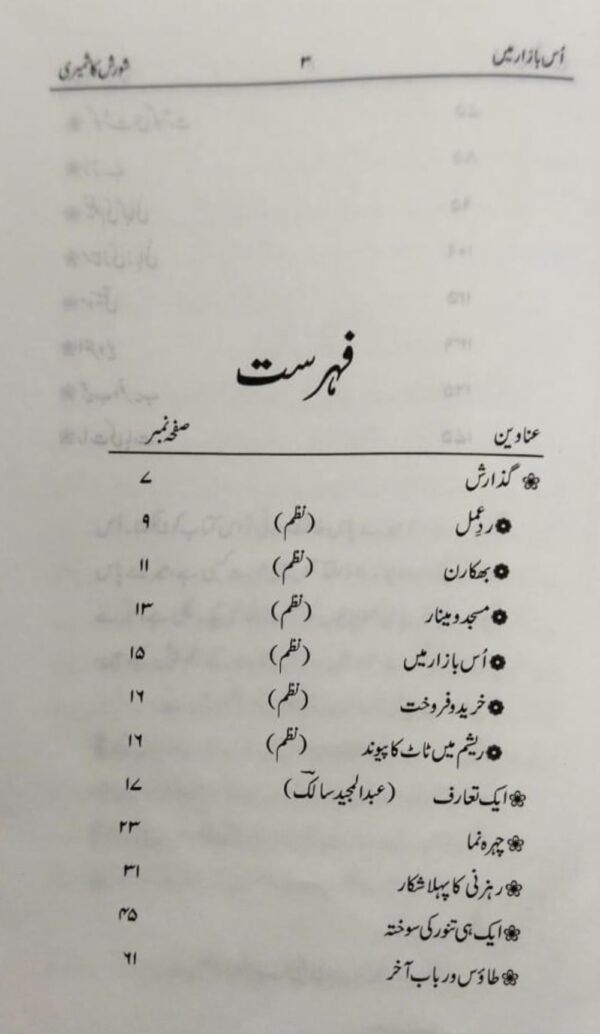 اُس بازار میں ۳ شورش کاشمیری
فہرست
عناوین صفحہ نمبر
گذارش ۷
ردِعمل (نظم) ۹
بھکارن (نظم) ۱۱
مسجد و مینار (نظم) ۱۳
اُس بازار میں (نظم) ۱۵
خرید و فروخت (نظم) ۱۶
ریشم میں ٹاٹ کا پیوند (نظم) ۱۶
ایک تعارف (عبدالمجید سالک) ۱۷
چہرہ نما ۲۳
رہزنی کا پہلا شکار ۳۱
ایک ہی تنور کی سوختہ ۴۵
طاؤس و رباب آخر ۶۱